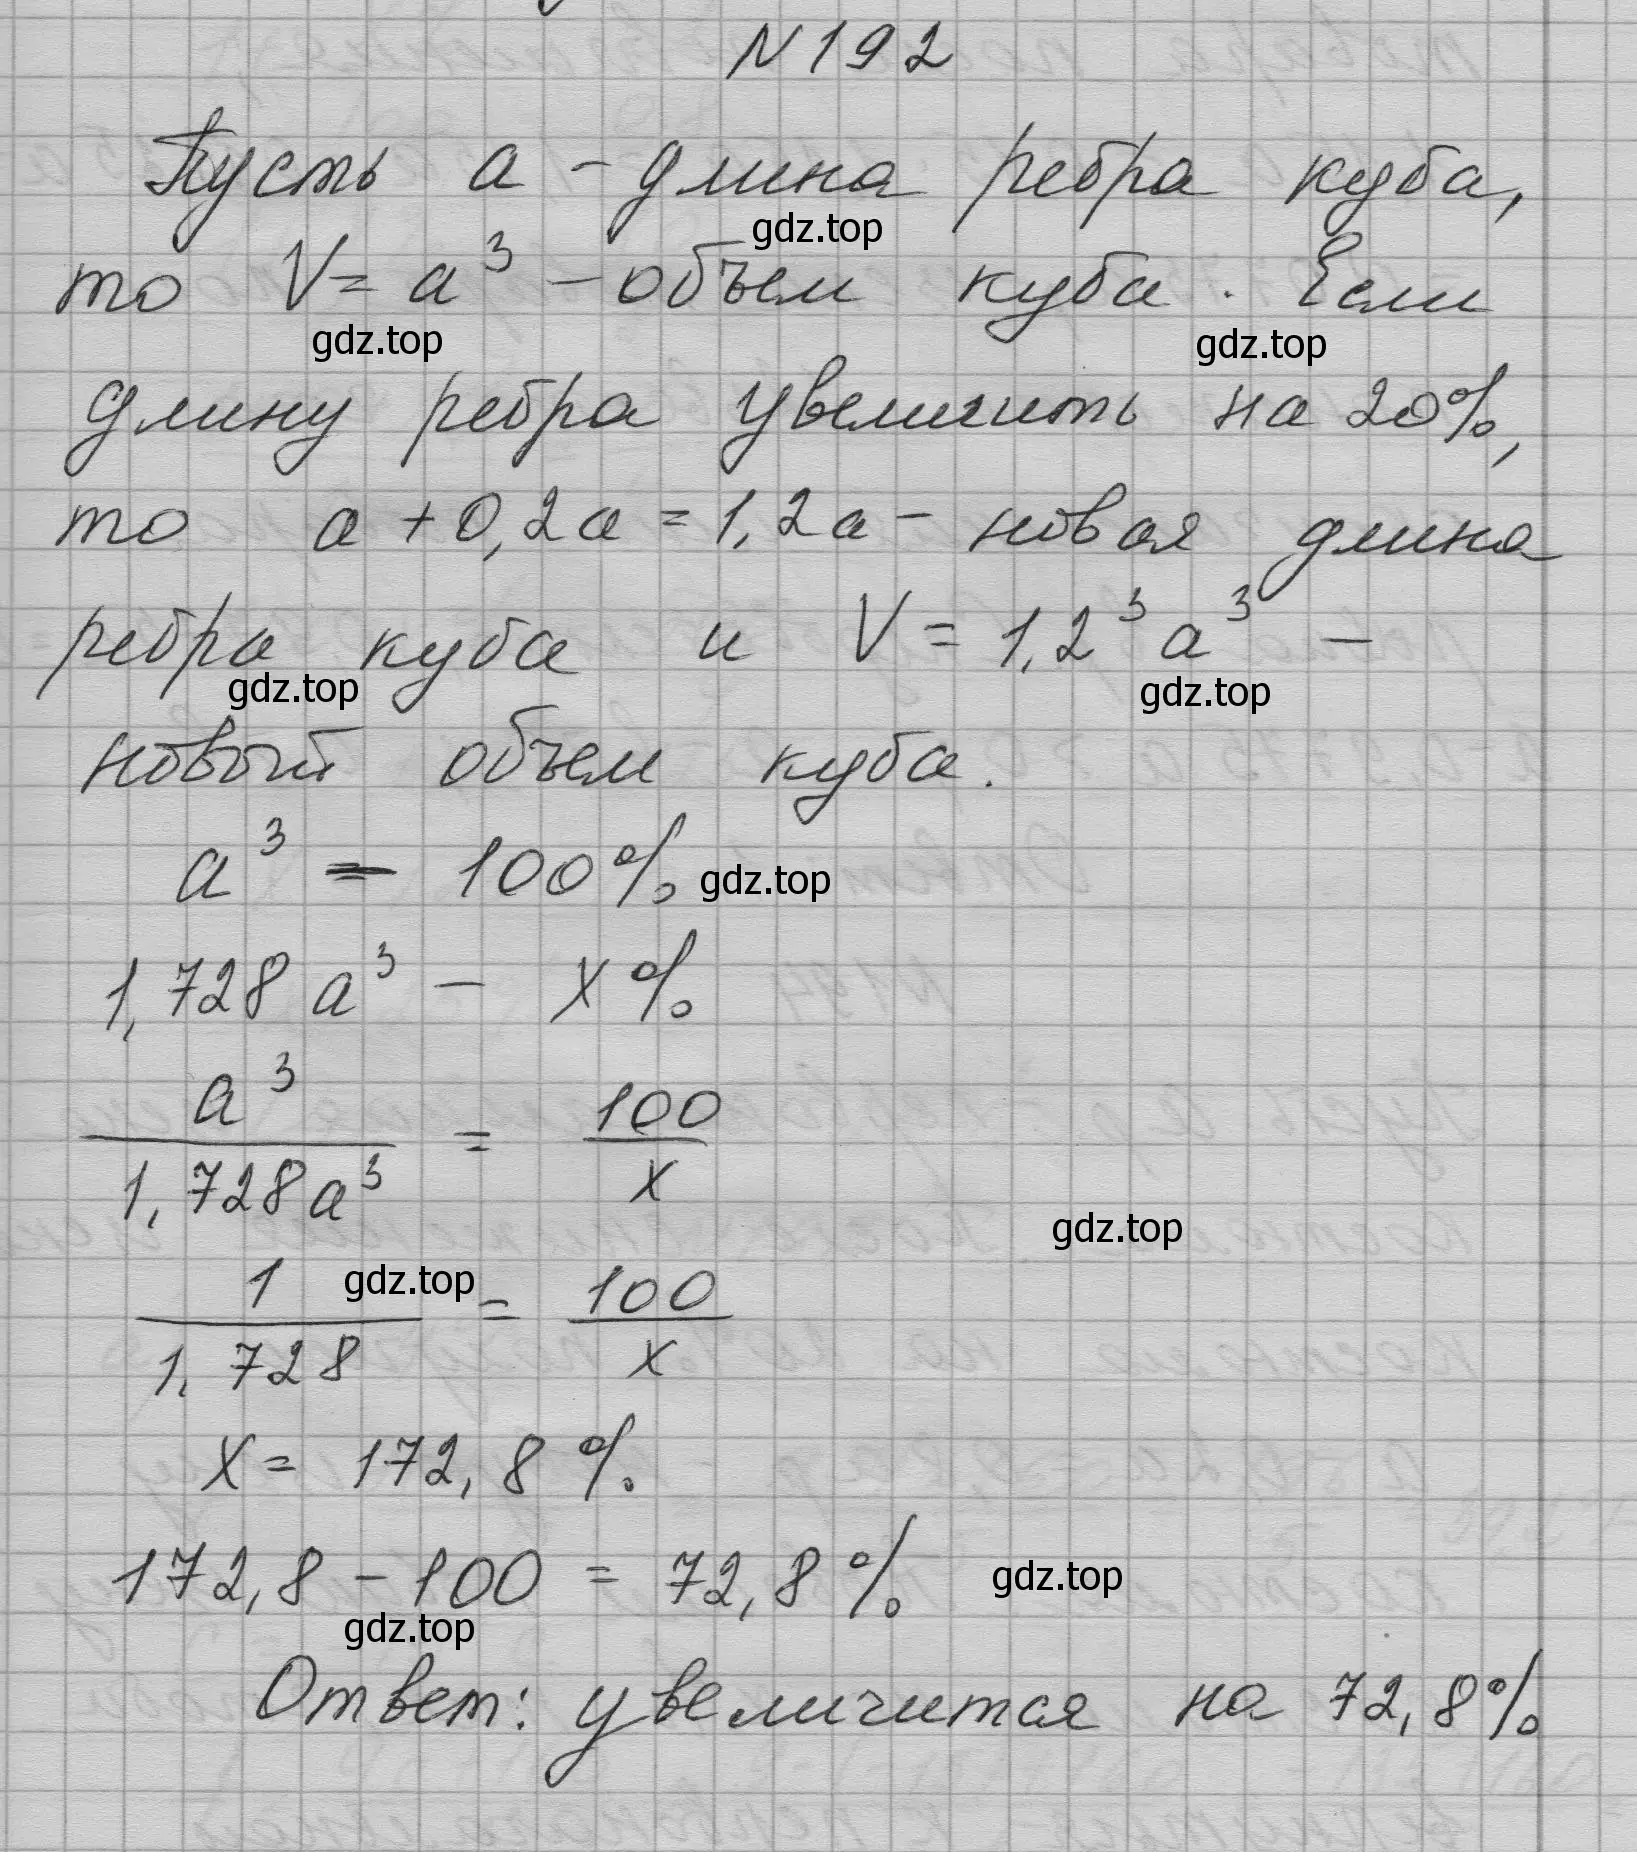 N192
Пусть a - длина ребра куба,
gdz.top
то V = a³ - объем куба. Если
gdz.top gdz.top
длину ребра увеличить на 20%,
то a + 0,2a = 1,2a - новая длина
ребра куба и V = 1,2³a³ -
gdz.top gdz.top
новый объем куба.
a³ - 100% gdz.top
1,728a³ - x%
a³/1,728a³ = 100/x
gdz.top
1/1,728 = 100/x
gdz.top
x = 172,8%
172,8 - 100 = 72,8% gdz.top
gdz.top
Ответ: увеличится на 72,8%